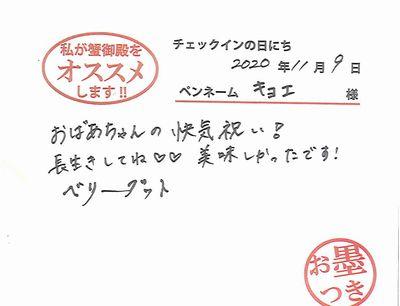 私が蟹御殿を
オススメ
します!!
チェックインの日にち
2020年11月9日
ペンネーム キヨエ 様
おばあちゃんの快気祝い!
長生きしてね♡♡ 美味しかったです!
ベリーグット
お墨
つき